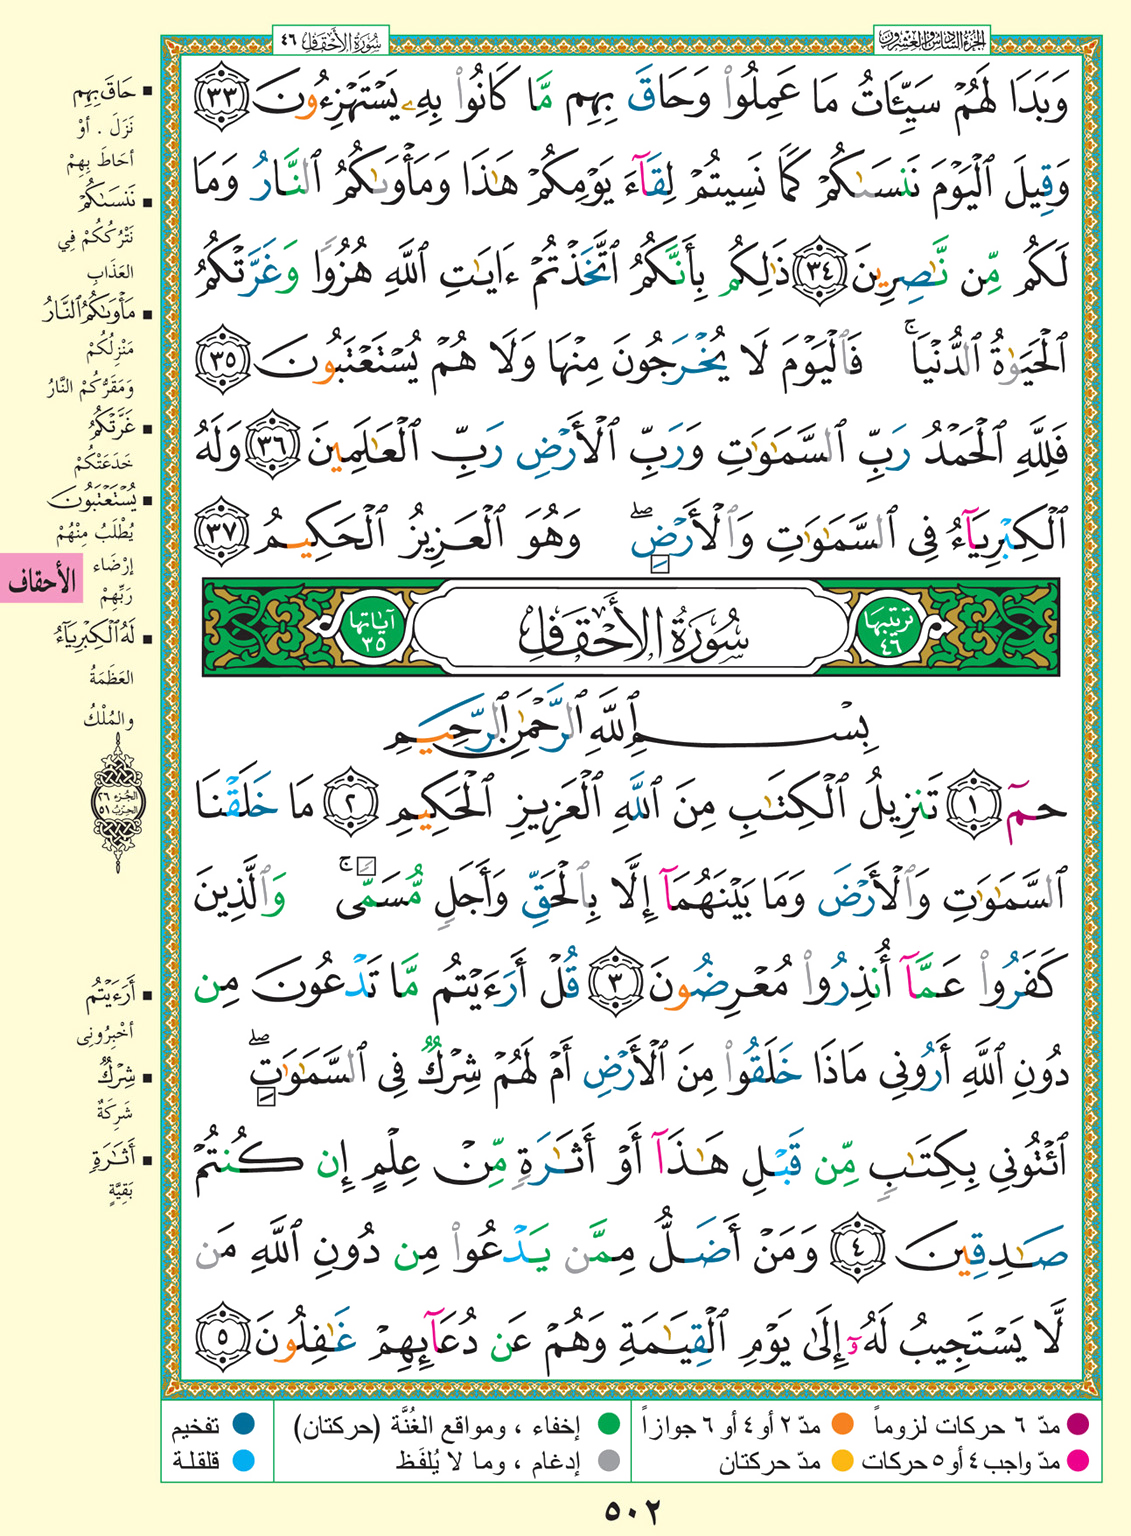 الجزء السادس والعشرون
سورة الأحقاف ٤٦
وَبَدَا لَهُمْ سَيِّـَٔاتُ مَا عَمِلُوا۟ وَحَاقَ بِهِم مَّا كَانُوا۟ بِهِۦ يَسْتَهْزِءُونَ ٣٣
وَقِيلَ ٱلْيَوْمَ نَنسَىٰكُمْ كَمَا نَسِيتُمْ لِقَآءَ يَوْمِكُمْ هَـٰذَا وَمَأْوَىٰكُمُ ٱلنَّارُ وَمَا
لَكُم مِّن نَّـٰصِرِينَ ٣٤ ذَٰلِكُم بِأَنَّكُمُ ٱتَّخَذْتُمْ ءَايَـٰتِ ٱللَّهِ هُزُوًا وَغَرَّتْكُمُ
ٱلْحَيَوٰةُ ٱلدُّنْيَا ۚ فَٱلْيَوْمَ لَا يُخْرَجُونَ مِنْهَا وَلَا هُمْ يُسْتَعْتَبُونَ ٣٥
فَلِلَّهِ ٱلْحَمْدُ رَبِّ ٱلسَّمَـٰوَٰتِ وَرَبِّ ٱلْأَرْضِ رَبِّ ٱلْعَـٰلَمِينَ ٣٦ وَلَهُ
ٱلْكِبْرِيَآءُ فِى ٱلسَّمَـٰوَٰتِ وَٱلْأَرْضِ ۖ وَهُوَ ٱلْعَزِيزُ ٱلْحَكِيمُ ٣٧
ترتيبها ٤٦
سُورَةُ الأَحْقَافِ
آياتها ٣٥
بِسْمِ ٱللَّهِ ٱلرَّحْمَـٰنِ ٱلرَّحِيمِ
حمٓ ١ تَنزِيلُ ٱلْكِتَـٰبِ مِنَ ٱللَّهِ ٱلْعَزِيزِ ٱلْحَكِيمِ ٢ مَا خَلَقْنَا
ٱلسَّمَـٰوَٰتِ وَٱلْأَرْضَ وَمَا بَيْنَهُمَآ إِلَّا بِٱلْحَقِّ وَأَجَلٍ مُّسَمًّى ۚ وَٱلَّذِينَ
كَفَرُوا۟ عَمَّآ أُنذِرُوا۟ مُعْرِضُونَ ٣ قُلْ أَرَءَيْتُم مَّا تَدْعُونَ مِن
دُونِ ٱللَّهِ أَرُونِى مَاذَا خَلَقُوا۟ مِنَ ٱلْأَرْضِ أَمْ لَهُمْ شِرْكٌ فِى ٱلسَّمَـٰوَٰتِ ۖ
ٱئْتُونِى بِكِتَـٰبٍ مِّن قَبْلِ هَـٰذَآ أَوْ أَثَـٰرَةٍ مِّنْ عِلْمٍ إِن كُنتُمْ
صَـٰدِقِينَ ٤ وَمَنْ أَضَلُّ مِمَّن يَدْعُوا۟ مِن دُونِ ٱللَّهِ مَن
لَّا يَسْتَجِيبُ لَهُۥٓ إِلَىٰ يَوْمِ ٱلْقِيَـٰمَةِ وَهُمْ عَن دُعَآئِهِمْ غَـٰفِلُونَ ٥
حَاقَ بِهِم
نَزَلَ . أوْ
أحَاطَ بِهِمْ
نَنسَىٰكُمْ
نَتْرُكُكُمْ فِي
العَذَابِ
مَأْوَىٰكُمُ ٱلنَّارُ
مَنْزِلُكُمْ
وَمَقَرُّكُمْ النَّارُ
غَرَّتْكُمُ
خَدَعَتْكُمْ
يُسْتَعْتَبُونَ
يُطْلَبُ مِنْهُمْ
إرْضَاء
رَبِّهِمْ
الأحقاف
لَهُ ٱلْكِبْرِيَآءُ
العَظَمَةُ
والمُلْكُ
الجزء ٢٦
الحزب ٥١
أَرَءَيْتُم
أخْبِرُونِى
شِرْكٌ
شَرِكَةٌ
أَثَـٰرَةٍ
بَقِيَّةٍ
مدّ ٦ حركات لزوماً مدّ ٢ أو ٤ أو ٦ جوازاً إخفاء ، ومواقع الغُنَّة (حركتان) تفخيم
مدّ واجب ٤ أو ٥ حركات مدّ حركتان إدغام ، وما لا يُلفَظ قلقلة
٥٠٢